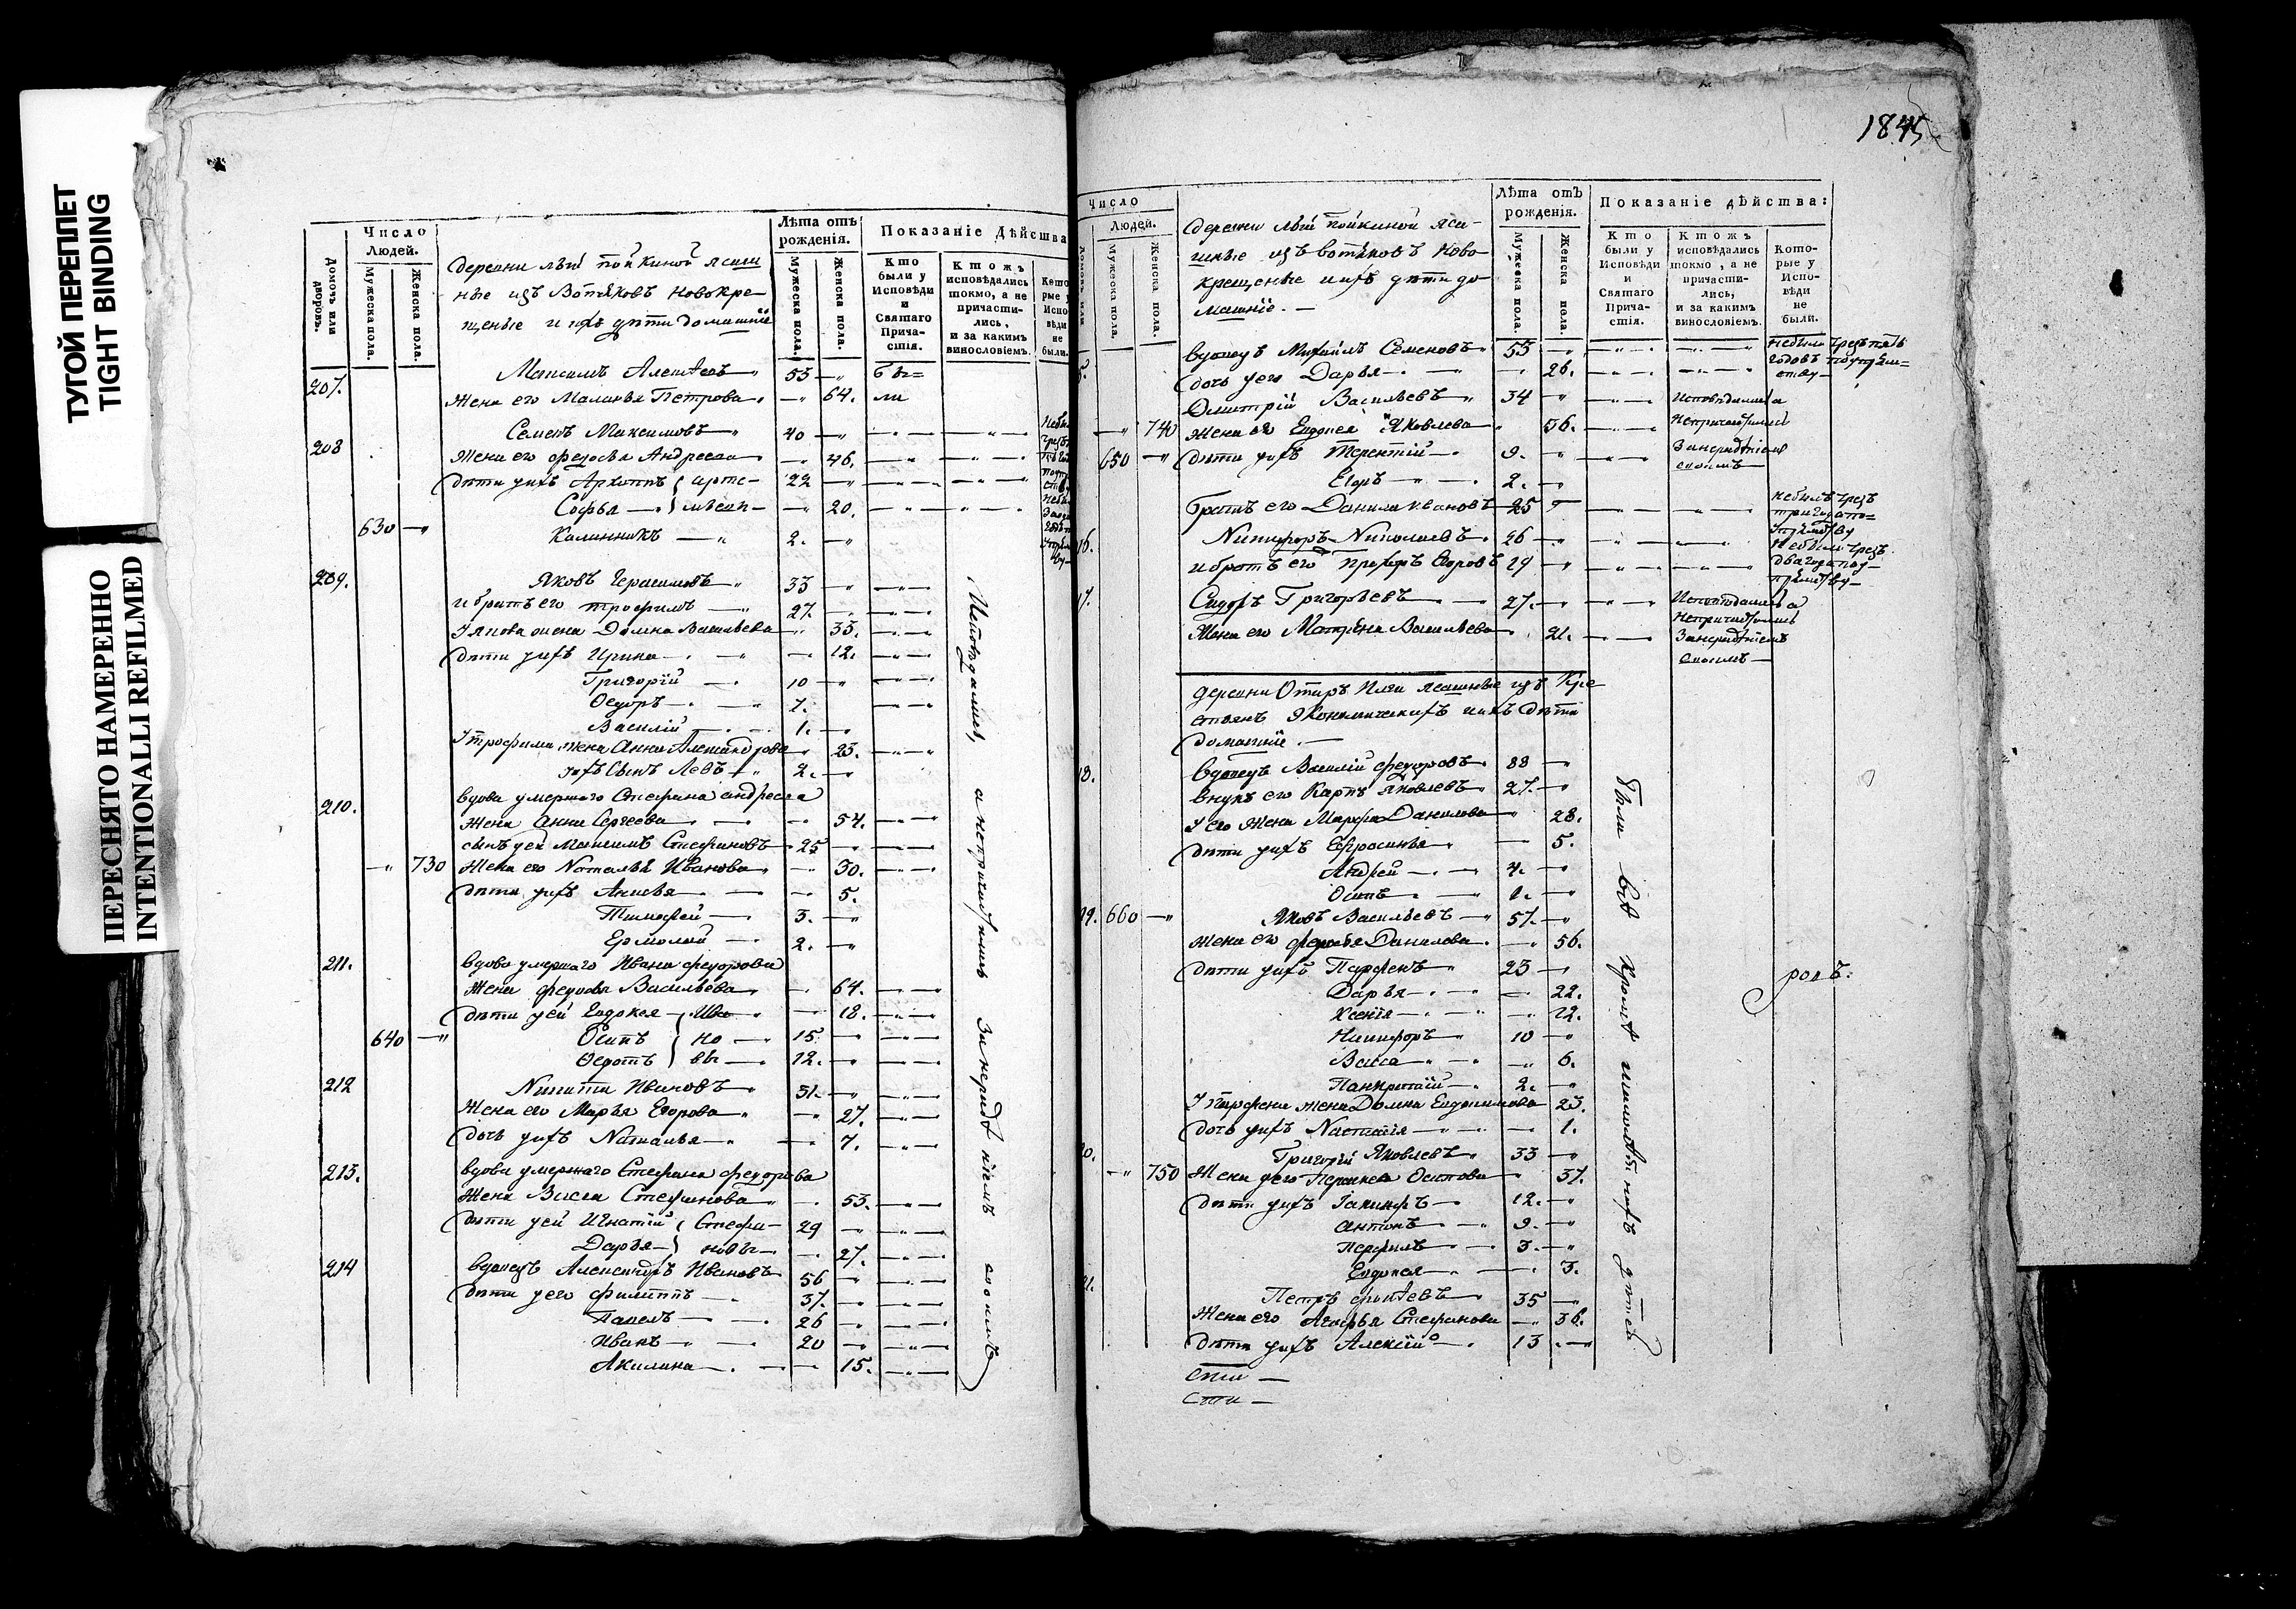 ТУГОЙ ПЕРЕПЛЕТ
TIGHT BINDING
ПЕРЕСНЯТО НАМЕРЕННО
INTENTIONALLI REFILMED
Домовъ или дворовъ.
Число Людей.
Мужеска пола.
Женска пола.
деревни
ные изъ Вотяковъ новокре
щеные и ихъ дѣти домашніе
Лѣта отъ рожденія.
Мужеска пола.
Женска пола.
Показаніе Дѣйства
Кто были у Исповѣди и Святаго Причастія.
Ктожъ исповѣдались токмо, а не причастились, и за какимъ винословіемъ.
207. Максимъ Алексѣевъ 55 бы=
Жена его Маланья Петрова 64. ли
208 Семенъ Максимовъ 40
Жена его федосья Андреева 46.
дѣти ихъ Архиппъ 22
Софья 20.
630 Калинникъ 2.
209. Яковъ Герасимовъ 33
и братъ его трофимъ 27.
У якова жена Домна Васильева 33.
дѣти уихъ Ирина 12.
Григорій 10
Ѳедоръ 7.
Василій 1.
У трофима жена Анна Александрова 23.
ихъ Сынъ Левъ 2.
210. вдова умершаго Стефана андреева
жена Анна Сергеева 54.
сынъ уей Максимъ Стефановъ 25
730 Жена его Наталья Иванова 30.
дѣти уихъ Анисья 5.
Тимофей 3.
Ермолай 2.
211. вдова умершаго Ивана федорова
жена федосья Васильева 64.
дѣти уей Евдокея Ива 18.
640 Осипъ но 15
Ѳедотъ вы 12.
212 Никита Ивановъ 31.
Жена его Марья Егорова 27.
дочь уихъ Наталья 7.
213. вдова умершаго Стефана федорова
жена Васса Стефанова 53.
дѣти уей Игнатій Стефа 29
Дарья новы 27.
214 вдовецъ Александръ Ивановъ 56
дѣти у его филиппъ 37.
Павелъ 26
Иванъ 20
Акилина 15.
Исповѣдались, а непричастились занерадѣніемъ своимъ
1845
Число Людей.
Мужеска пола.
Женска пола.
деревни
шные изъ вотяковъ ново
крещеные и ихъ дѣти до
машніе.
Лѣта отъ рожденія.
Мужеска пола.
Женска пола.
Показаніе дѣйства:
Кто были у Исповѣди и Святаго Причастія.
Ктожъ исповѣдались токмо, а не причастились, и за какимъ винословіемъ.
Которые у Исповѣди не были.
вдовецъ Михайлъ Семеновъ 53
дочь уего Дарья 26.
Дмитрій Васильевъ 34
740 Жена его Евдокея Яковлева 36.
650 дѣти уихъ Терентій 9.
Егоръ 2.
братъ его Данила ивановъ 25
Никифоръ Николаевъ 26
и братъ его 29
Сидоръ Григорьевъ 27.
Жена его Матрена Васильева 21.
Исповѣдались а
непричастились
занерадѣніемъ
своимъ
деревни ясашные изъ Кре
стьянъ Экономическихъ и ихъ дѣти
домашніе.
вдовецъ Василій федоровъ 88
внукъ его Карпъ Яковлевъ 27.
У его жена Марфа Данилова 28.
дѣти уихъ Ефросинья 5.
Андрей 4.
Осипъ 1.
660 Яковъ Васильевъ 57.
жена его федосья Данилова 56.
дѣти уихъ Парфенъ 23
Дарья 22.
Ксенія 12.
Никифоръ 10
Васса 6.
Панкратій 2.
У парфена жена Домна Евдокимова 23.
дочь уихъ Настасія 1.
Григорій Яковлевъ 33
750 Жена уего Осипова 37.
дѣти уихъ Іакинфъ 12.
антонъ 9.
Перфилъ 3.
Евдокея 3.
Петръ 35
Жена его Агафья Стефанова 36.
дѣти уихъ Алексій 13
Были всѣ кромѣ малолѣтнихъ дѣтей